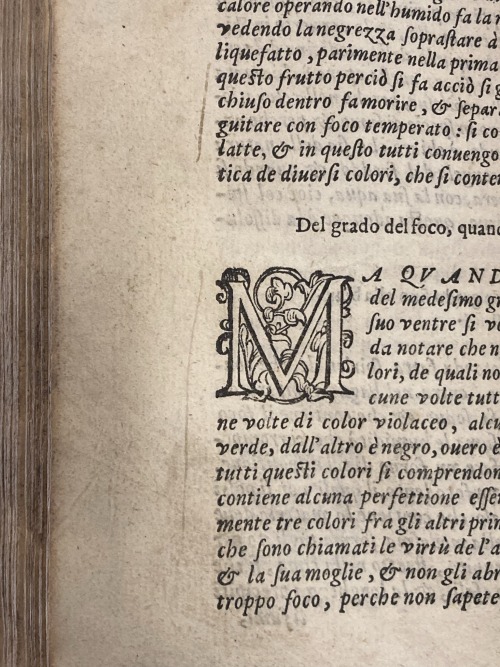 calore operando nell'humido fa la n
vedendo la negrezza soprastare à
liquefatto, parimente nella prima
questo frutto perciò si fa acciò si g
chiuso dentro fa morire, & separ
guitare con foco temperato: si co
latte, & in questo tutti conuengo
tica de diuersi colori, che si conter
Del grado del foco, quan
MA QVAND
del medesimo gr
suo ventre si ve
da notare che n
lori, de quali no
cune volte tutt
ne volte di color violaceo, alcu
verde, dall'altro è negro, ouero è
tutti questi colori si comprendon
contiene alcuna perfettione esse
mente tre colori fra gli altri prin
che sono chiamati le virtù de l'a
& la sua moglie, & non gli abr
troppo foco, perche non sapete